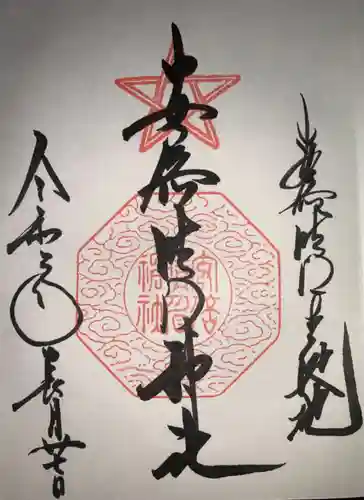 安倍晴明
安倍晴明神社
安倍晴明神社
令和三年長月廿七日